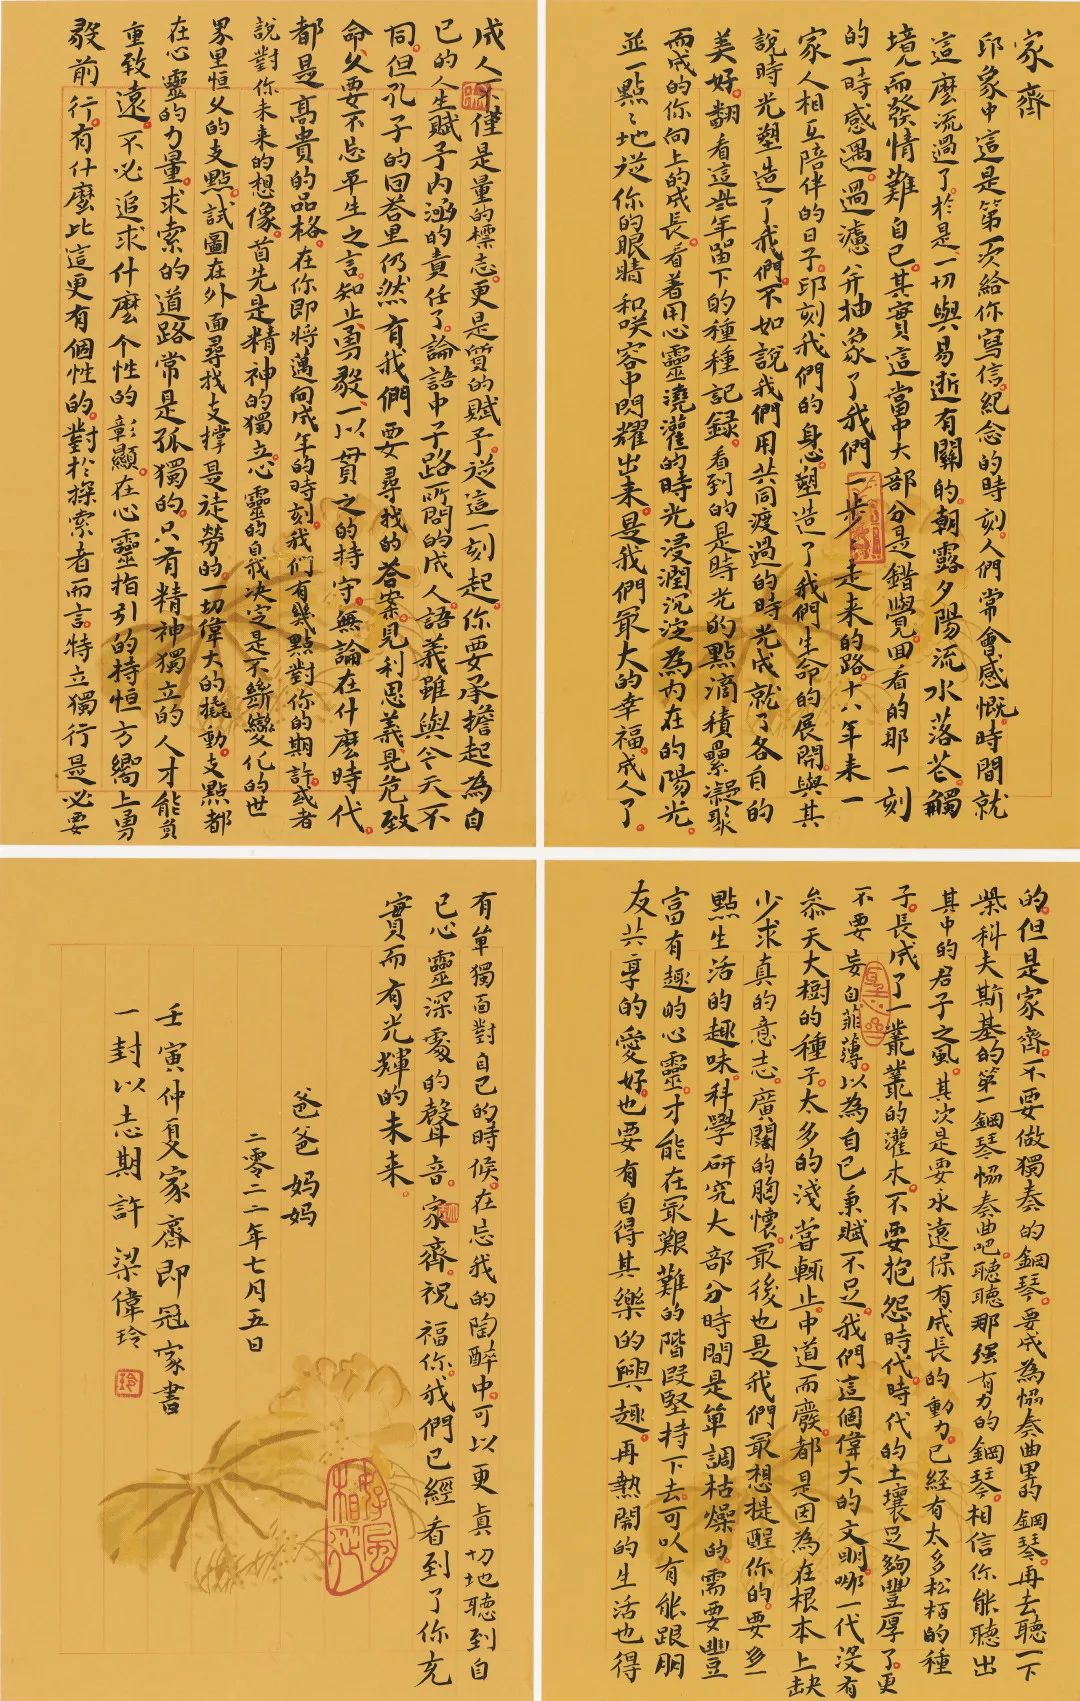 家齊
印象中這是第一次給你寫信。紀念的時刻。人們常會感慨。時間就
這麼流過了。於是一切與易逝有關的。朝露夕陽流水落花觸
境而發情難自已。其實這當中大部分是錯覺。回看的那一刻
的一時感遇。過濾并抽象了我們一步步走来的路。十八年来一
家人相互陪伴的日子。印刻我們的身心。塑造了我們生命的展開。與其
說時光塑造了我們。不如說我們用共同渡過的時光成就了各自的
美好。翻看這些年留下的種種記録。看到的是時光的點滴積纍凝聚
而成的你向上的成長。看著用心靈澆灌的時光浸潤沉淀為内在的陽光。
並一點々地從你的眼睛和咲容中閃耀出来。是我們最大的幸福。成人了。
成人不僅是量的標志。更是質的賦予。從這一刻起。你要承擔起為自
己的人生賦予内涵的責任了。論語中子路所問的成人。語義雖與今天不
同。但孔子的回答里仍然有我們要尋找的答案。見利思義。見危致
命。久要不忘平生之言。知止。勇毅。一以貫之的持守。無論在什麼時代。
都是高貴的品格。在你即将邁向成年的時刻。我们有幾點對你的期許。或者
說對你未来的想像。首先是精神的獨立。心靈的自我决定是不斷變化的世
界里恒久的支點。試圖在外面尋找支撑是徒勞的。一切偉大的撬動。支點都
在心靈的力量。求索的道路常是孤獨的。只有精神獨立的人才能負
重致遠。不必追求什麼个性的彰顯。在心靈指引的持恒方嚮上勇
毅前行。有什麼比這更有個性的。對於探索者而言。特立獨行是必要
的。但是家齊。不要做獨奏的鋼琴。要成為協奏曲里的鋼琴。再去聽一下
柴科夫斯基的第一鋼琴協奏曲吧。聽聽那强有力的鋼琴。相信你能聽出
其中的君子之風。其次是要永遠保有成長的動力。已經有太多松柏的種
子。長成了一叢叢的灌木。不要抱怨時代。時代的土壤足夠豐厚了。更
不要妄自菲薄。以為自己秉賦不足。我們這個偉大的文明。哪一代没有
叅天大樹的種子。太多的淺嘗輒止。中道而廢。都是因為在根本上缺
少求真的意志。廣闊的胸懷。最後也是我們最想提醒你的。要多一
點生活的趣味。科學研究大部分時間是單調枯燥的。需要豐
富有趣的心靈。才能在最艱難的階段堅持下去。可以有能跟朋
友共享的愛好。也要有自得其樂的興趣。再熱鬧的生活也得
有單獨面對自己的時候。在忘我的陶醉中。可以更真切地聽到自
己心靈深處的聲音。家齊。祝福你。我們已經看到了你充
實而有光輝的未来。
爸爸 妈妈
二零二二年七月五日
壬寅仲夏家齊即冠家書
一封以志期許 梁偉玲